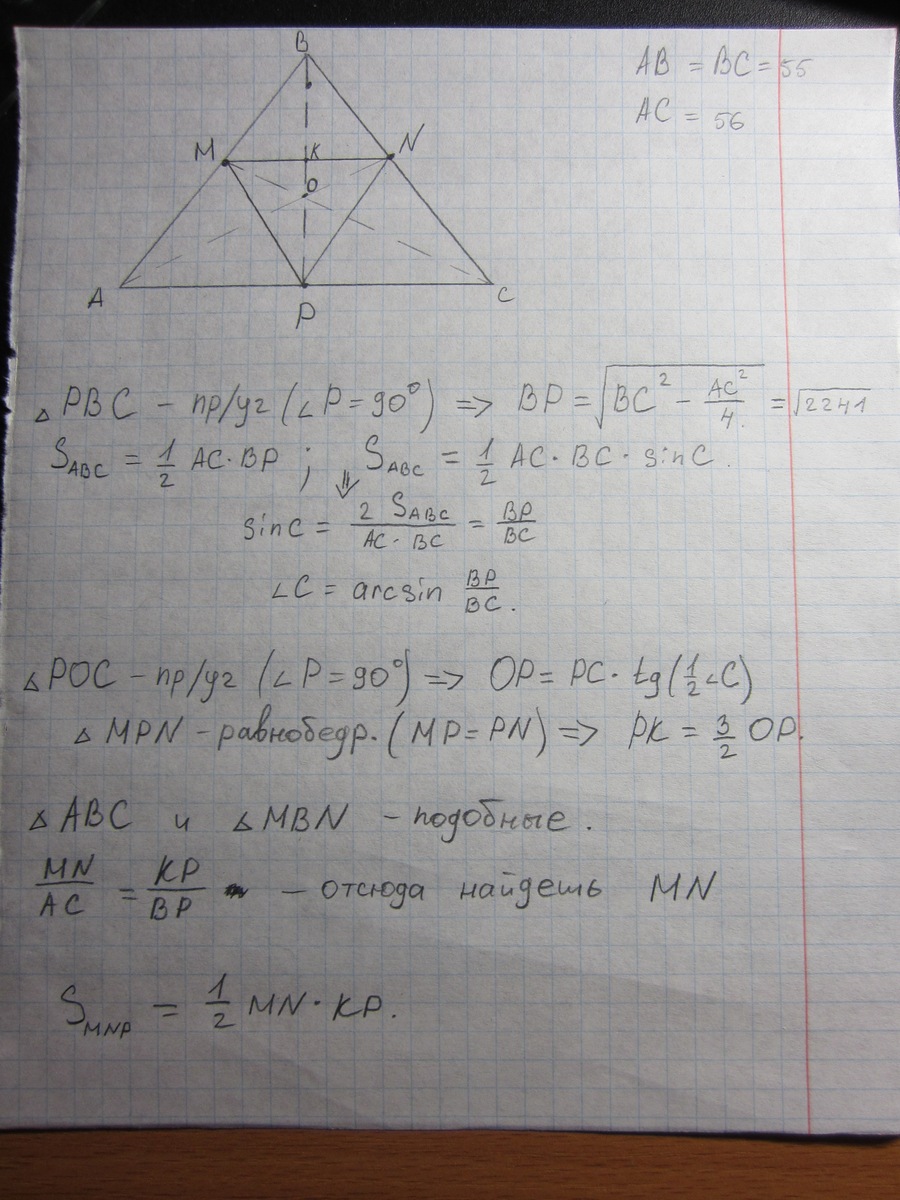 B
AB = BC = 55
AC = 56
M K N
O
A P C
△ PBC - пр/уг (∠P = 90°) => BP = √(BC² - AC²/4.) = √2241
S_ABC = 1/2 AC · BP ; S_ABC = 1/2 AC · BC · sinC.
⇓
sinC = 2 S_ABC / AC · BC = BP/BC
∠C = arcsin BP/BC.
△ POC - пр/уг (∠P = 90°) => OP = PC · tg(1/2 ∠C)
△ MPN - равнобедр. (MP = PN) => PK = 3/2 OP.
△ ABC и △ MBN - подобные.
MN/AC = KP/BP - отсюда найдешь MN
S_MNP = 1/2 MN · KP.